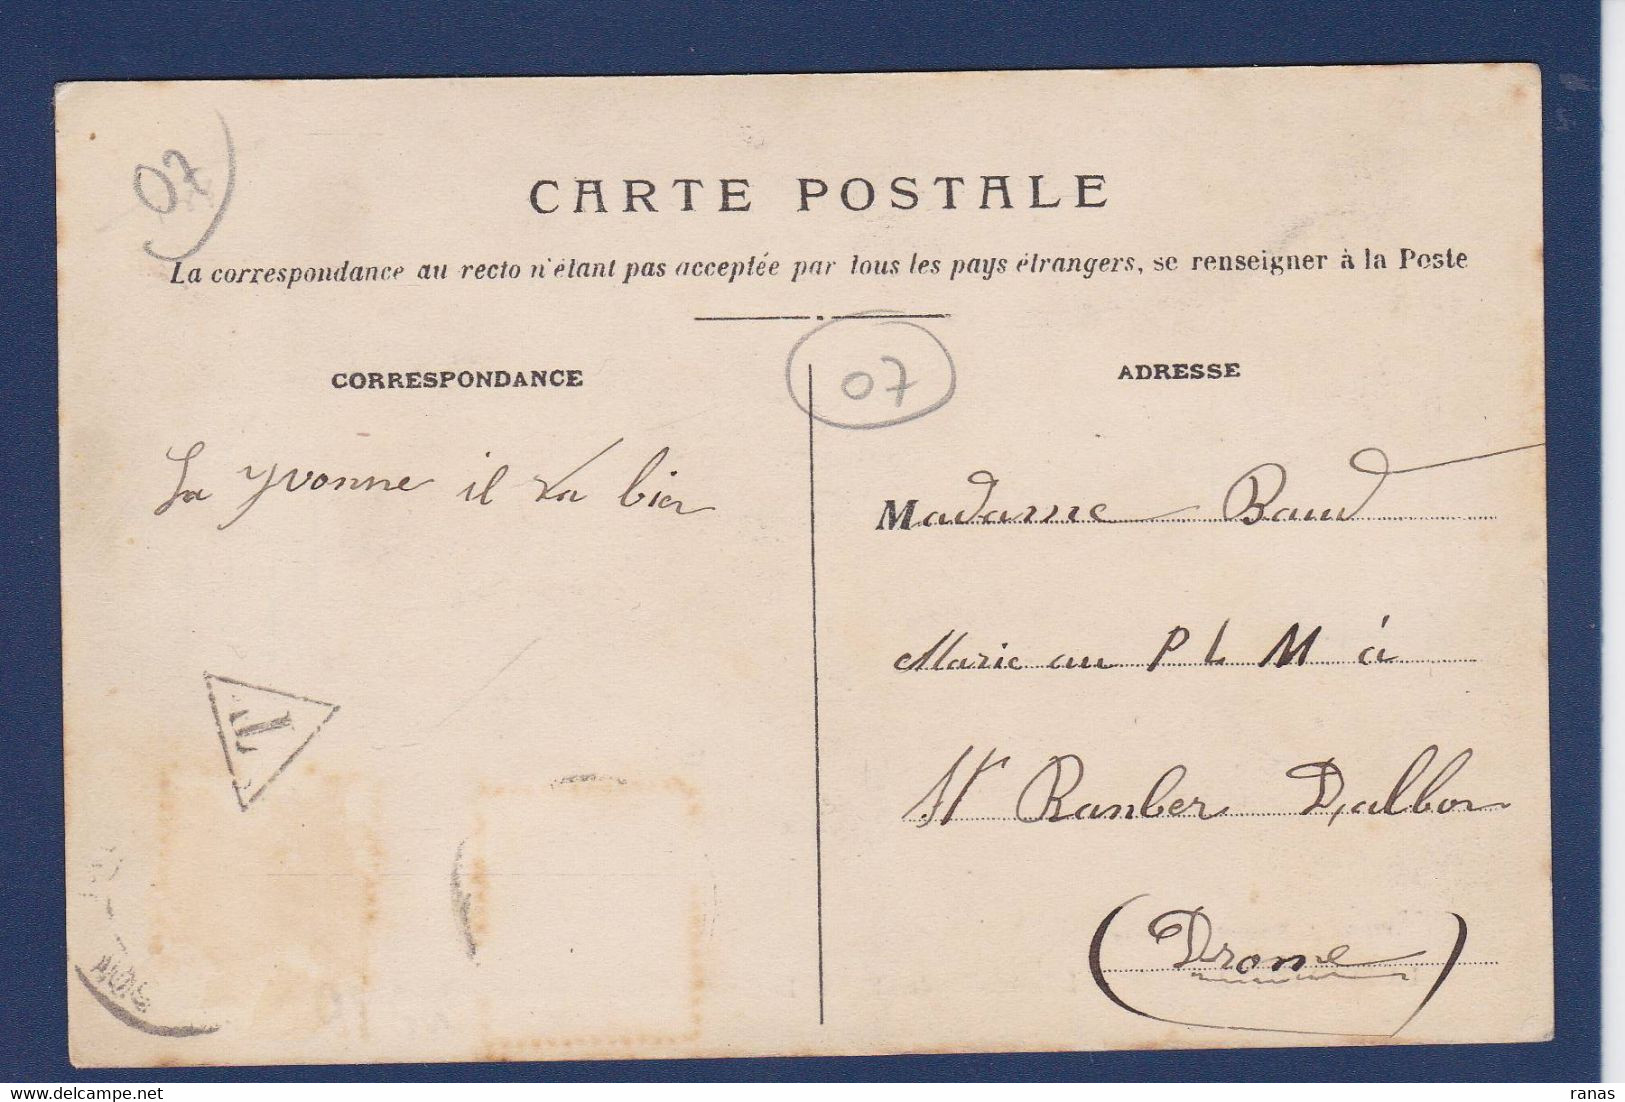 07
CARTE POSTALE
La correspondance au recto n'étant pas acceptée par tous les pays étrangers, se renseigner à la Poste
07
CORRESPONDANCE
ADRESSE
La Yvonne il va bien
Madame Baud
Marie au P L M à
St Ranber Dalbon
(Drome)
T
ranas